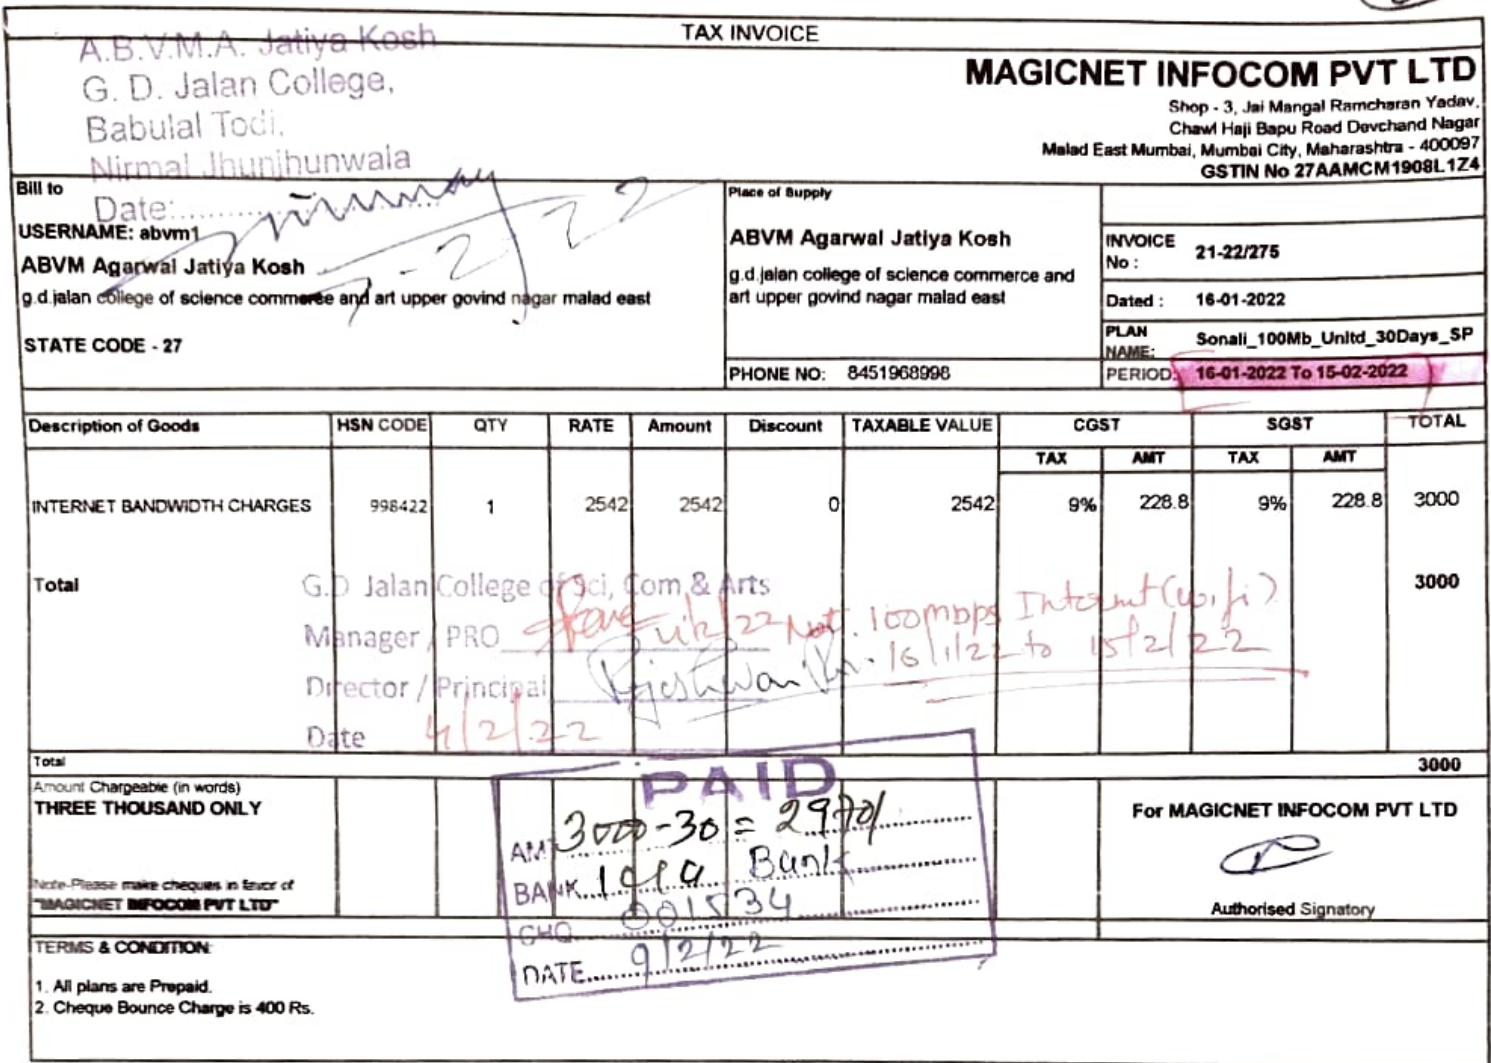 TAX INVOICE
A.B.V.M.A. Jatiya Kosh
G. D. Jalan College,
Babulal Todi,
Nirmal Jhunjhunwala
Date:
7-2-22
MAGICNET INFOCOM PVT LTD
Shop - 3, Jai Mangal Ramcharan Yadav,
Chawl Haji Bapu Road Devchand Nagar
Malad East Mumbai, Mumbai City, Maharashtra - 400097
GSTIN No 27AAMCM1908L1Z4
Bill to
USERNAME: abvm1
ABVM Agarwal Jatiya Kosh
g.d.jalan college of science commerce and art upper govind nagar malad east
STATE CODE - 27
Place of Supply
ABVM Agarwal Jatiya Kosh
g.d.jalan college of science commerce and
art upper govind nagar malad east
PHONE NO: 8451968998
INVOICE No : 21-22/275
Dated : 16-01-2022
PLAN NAME: Sonali_100Mb_Unltd_30Days_SP
PERIOD: 16-01-2022 To 15-02-2022
Description of Goods HSN CODE QTY RATE Amount Discount TAXABLE VALUE CGST SGST TOTAL
TAX AMT TAX AMT
INTERNET BANDWIDTH CHARGES 998422 1 2542 2542 0 2542 9% 228.8 9% 228.8 3000
Total 3000
G.D Jalan College of Sci, Com & Arts
Manager / PRO
100mbps Internet (wifi)
16/1/22 to 15/2/22
Director / Principal
Date 4/2/22
Total 3000
Amount Chargeable (in words)
THREE THOUSAND ONLY
Note-Please make cheques in favor of
"MAGICNET INFOCOM PVT LTD"
PAID
AMT 3000-30 = 2970/
BANK Bank
CHQ 001534
DATE 9/2/22
For MAGICNET INFOCOM PVT LTD
Authorised Signatory
TERMS & CONDITION:
1. All plans are Prepaid.
2. Cheque Bounce Charge is 400 Rs.